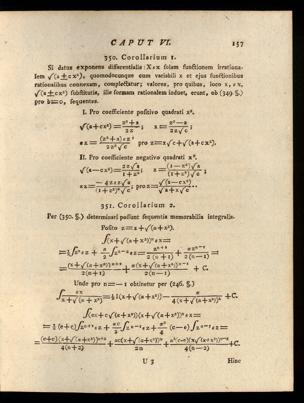 CAPUT VI. 157
350. Corollarium 1.
Si datus exponens differentialis: X∂x solam functionem irrationa-
lem √(a±cx²), quomodocunque cum variabili x et ejus functionibus
rationalibus connexam, complectatur; valores, pro quibus, loco x, ∂x,
√(a±cx²) substitutis, ille formam rationalem induet, erunt, ob (349. §)
pro b=0, sequentes.
I. Pro coefficiente positivo quadrati x².
√(a+cx²)=(z²+a)/2z; x=(z²−a)/(2z√c);
∂x=(z²+a)∂z/(2z²√c) pro z=x√c+√(a+cx²).
II. Pro coefficiente negativo quadrati x².
√(a−cx²)=2z√a/(1+z²); x=(1−z²)√a/((1+z²)√c);
∂x=−4z∂z√a/((1+z²)²√c); pro z=√(a−cx²)/(√a+x√c).
351. Corollarium 2.
Per (350. §.) determinari possunt sequentia memorabilia integralia.
Posito z=x+√(a+x²).
∫(x+√(a+x²))ⁿ∂x=
=½∫zⁿ∂z+(a/2)∫zⁿ⁻²∂z=zⁿ⁺¹/(2(n+1))+azⁿ⁻¹/(2(n−1))=
=(x+√(a+x²))ⁿ⁺¹/(2(n+1))+a(x+√(a+x²))ⁿ⁻¹/(2(n−1))+C.
Unde pro n=−1 obtinetur per (246. §.)
∫∂x/(x+√(a+x²))=½l(x+√(a+x²))−a/(4(x+√(a+x²))²)+C.
U 3 Hinc